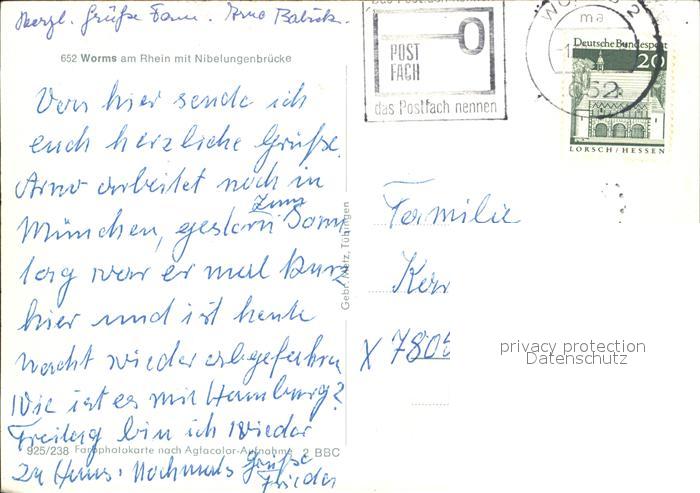 Herzl. Grüße Fam. Arno Babick.
652 Worms am Rhein mit Nibelungenbrücke
Von hier sende ich
euch herzliche Grüße.
Arno arbeitet noch in
München, gestern zum Sonn
tag war er mal kurz
hier und ist heute
nacht wieder abgefahren
Wie ist es mit Hamburg?
Freitag bin ich wieder
zu Haus. Nochmals Grüße
Frieda
925/238 Farbphotokarte nach Agfacolor-Aufnahme 2 BBC
Gebr. Metz, Tübingen
POST
FACH
das Postfach nennen
WORMS 2
ma
652
Deutsche Bundespost
20
LORSCH/HESSEN
Familie
X 7805
privacy protection
Datenschutz